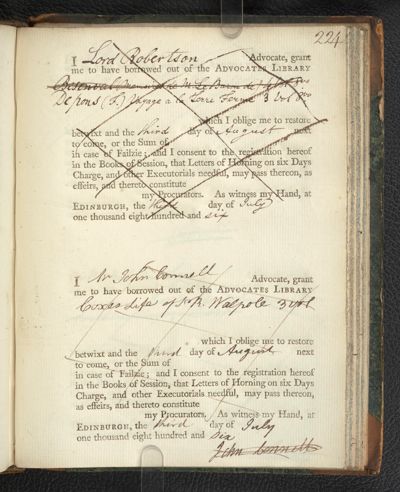 224
I Lord Robertson Advocate, grant
me to have borrowed out of the ADVOCATES LIBRARY
Besenval Memoires de M. Le Baron de
Depons (F.) Voyage a la Terre Ferme 3 Vol 8vo
which I oblige me to restore
betwixt and the third day of August next
to come, or the Sum of
in case of Failzie; and I consent to the registration hereof
in the Books of Session, that Letters of Horning on six Days
Charge, and other Executorials needful, may pass thereon, as
effeirs, and thereto constitute
my Procurators. As witness my Hand, at
EDINBURGH, the third day of July
one thousand eight hundred and six
I Mr John Connell Advocate, grant
me to have borrowed out of the ADVOCATES LIBRARY
Coxes Life of Sir R. Walpole 3 Vol
which I oblige me to restore
betwixt and the third day of August next
to come, or the Sum of
in case of Failzie; and I consent to the registration hereof
in the Books of Session, that Letters of Horning on six Days
Charge, and other Executorials needful, may pass thereon,
as effeirs, and thereto constitute
my Procurators. As witness my Hand, at
EDINBURGH, the third day of July
one thousand eight hundred and six
John Connell